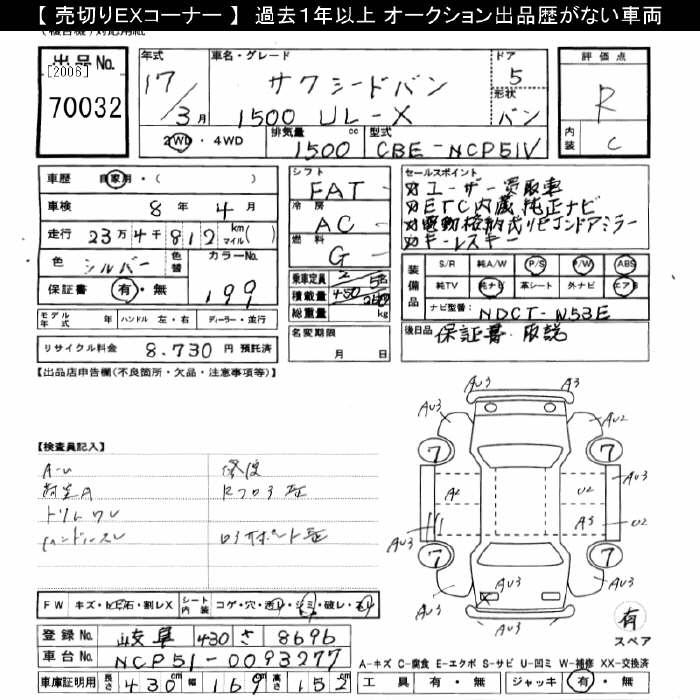 【 売切りEXコーナー 】 過去1年以上 オークション出品歴がない車両
出品No.
[2006]
70032
年式
17/3月
車名・グレード
サクシードバン
1500 UL-X
ドア
5
形状
バン
評価点
R
内装
C
2WD・4WD
排気量
1500 cc
型式
CBE-NCP51V
車歴 自家用・( )
車検 8年 4月
走行 23万4千812 km(マイル)( )
色 シルバー 色替
カラーNo.
199
保証書 有・無
モデル年式 年 ハンドル 左・右 ディーラー・並行
リサイクル料金 8.730円 預託済
シフト
FAT
冷房
AC
燃料
G
乗車定員 2 5名
積載量 450 250
総重量 kg
名変期限
月 日
セールスポイント
ユーザー買取車
ETC内蔵純正ナビ
電動格納式リモコンドアミラー
キーレスキー
装備品
S/R 純A/W P/S P/W ABS
純TV 純ナビ 革シート 外ナビ エアB
ナビ型番: NDCT-W53E
後日品 保証書 取説
【出品店申告欄(不良箇所・欠品・注意事項等)】
【検査員記入】
A-U 修復
トリムワレ
FW キズ・ヒビ・石・割レX シート内装 コゲ・穴・汚レ・シミ・破レ・スレ
登録No. 岐阜 430 さ 8696
車台No. NCP51-0093277
車庫証明用 長さ 430cm 幅 169cm 高さ 152cm
AU3 A3
AU3 AU2
7 7
A2 U2 AU3
AU3 A3 U2
7 7
AU3
X
AU3
有
スペア
A-キズ C-腐食 E-エクボ S-サビ U-凹ミ W-補修 XX-交換済
工具 有・無 ジャッキ 有・無